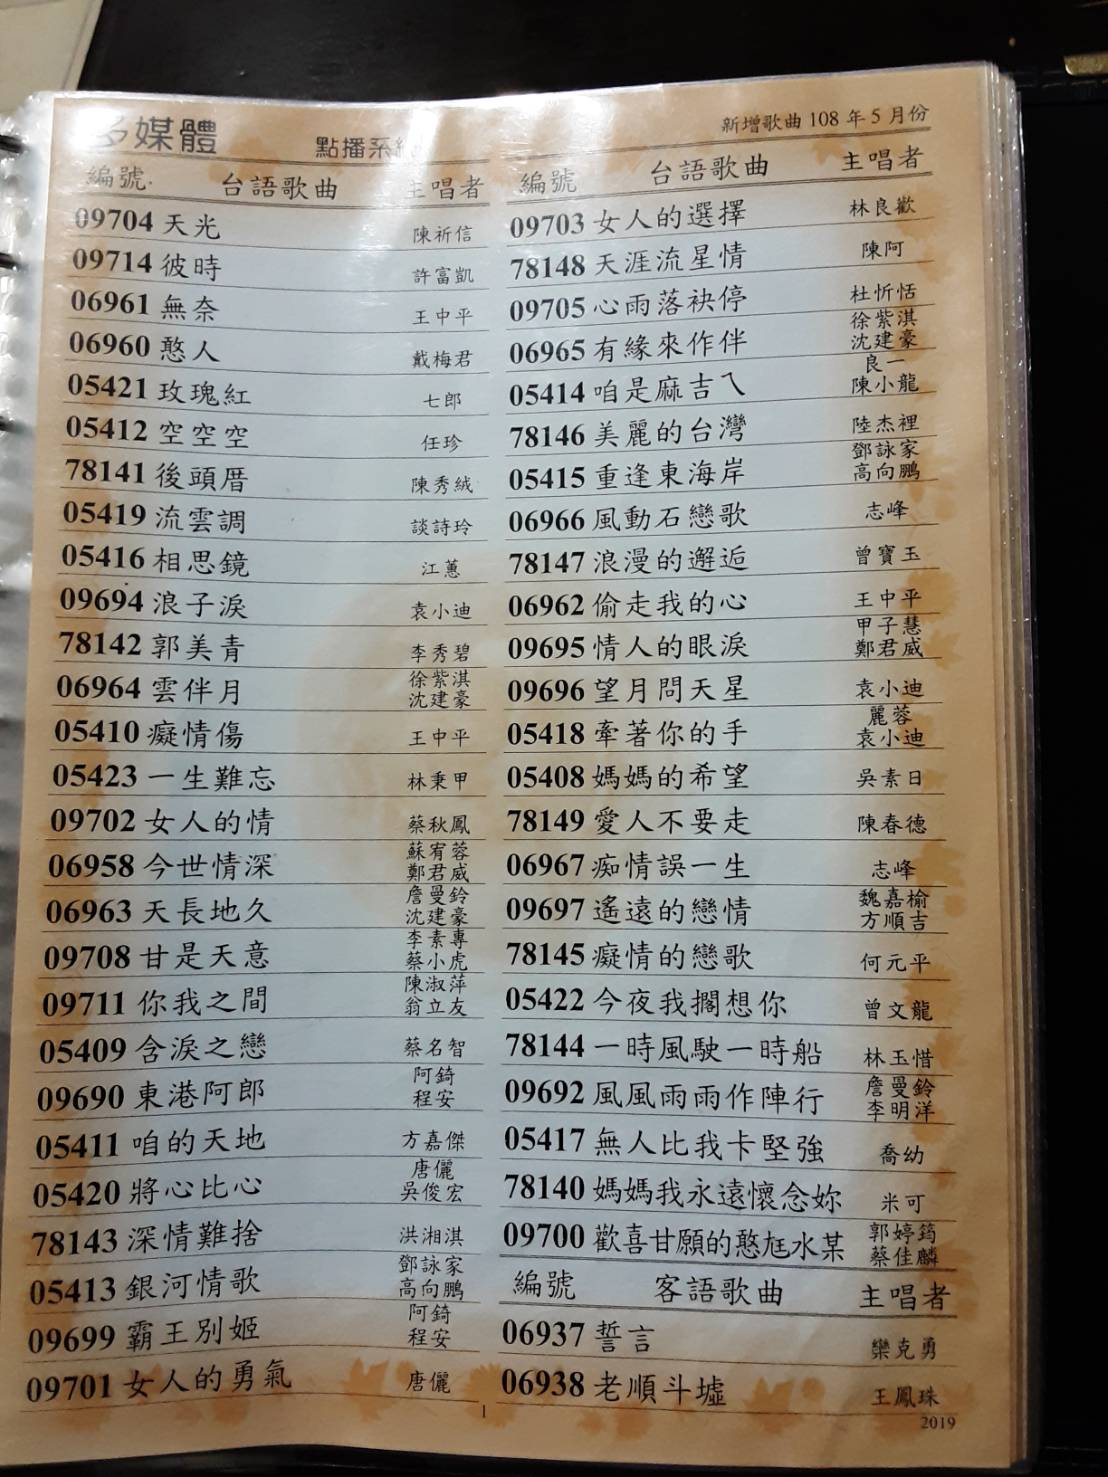 多媒體 點播系統
新增歌曲 108 年 5 月份
編號 台語歌曲 主唱者
09704 天光 陳祈信
09714 彼時 許富凱
06961 無奈 王中平
06960 憨人 戴梅君
05421 玫瑰紅 七郎
05412 空空空 任珍
78141 後頭厝 陳秀絨
05419 流雲調 談詩玲
05416 相思鏡 江蕙
09694 浪子淚 袁小迪
78142 郭美青 李秀碧
06964 雲伴月 徐紫淇 沈建豪
05410 癡情傷 王中平
05423 一生難忘 林秉甲
09702 女人的情 蔡秋鳳
06958 今世情深 蘇宥蓉 鄭君威
06963 天長地久 詹曼鈴 沈建豪
09708 甘是天意 李素專 蔡小虎
09711 你我之間 陳淑萍 翁立友
05409 含淚之戀 蔡名智
09690 東港阿郎 阿錡 程安
05411 咱的天地 方嘉傑
05420 將心比心 唐儷 吳俊宏
78143 深情難捨 洪湘淇
05413 銀河情歌 鄧詠家 高向鵬
09699 霸王別姬 阿錡 程安
09701 女人的勇氣 唐儷
編號 台語歌曲 主唱者
09703 女人的選擇 林良歡
78148 天涯流星情 陳阿
09705 心雨落袂停 杜忻恬
06965 有緣來作伴 徐紫淇 沈建豪
05414 咱是麻吉ㄟ 良一 陳小龍
78146 美麗的台灣 陸杰裡
05415 重逢東海岸 鄧詠家 高向鵬
06966 風動石戀歌 志峰
78147 浪漫的邂逅 曾寶玉
06962 偷走我的心 王中平
09695 情人的眼淚 甲子慧 鄭君威
09696 望月問天星 袁小迪
05418 牽著你的手 麗蓉 袁小迪
05408 媽媽的希望 吳素日
78149 愛人不要走 陳春德
06967 痴情誤一生 志峰
09697 遙遠的戀情 魏嘉榆 方順吉
78145 癡情的戀歌 何元平
05422 今夜我擱想你 曾文龍
78144 一時風駛一時船 林玉惜
09692 風風雨雨作陣行 詹曼鈴 李明洋
05417 無人比我卡堅強 喬幼
78140 媽媽我永遠懷念妳 米可
09700 歡喜甘願的憨尪水某 郭婷筠 蔡佳麟
編號 客語歌曲 主唱者
06937 誓言 欒克勇
06938 老順斗墟 王鳳珠
1
2019